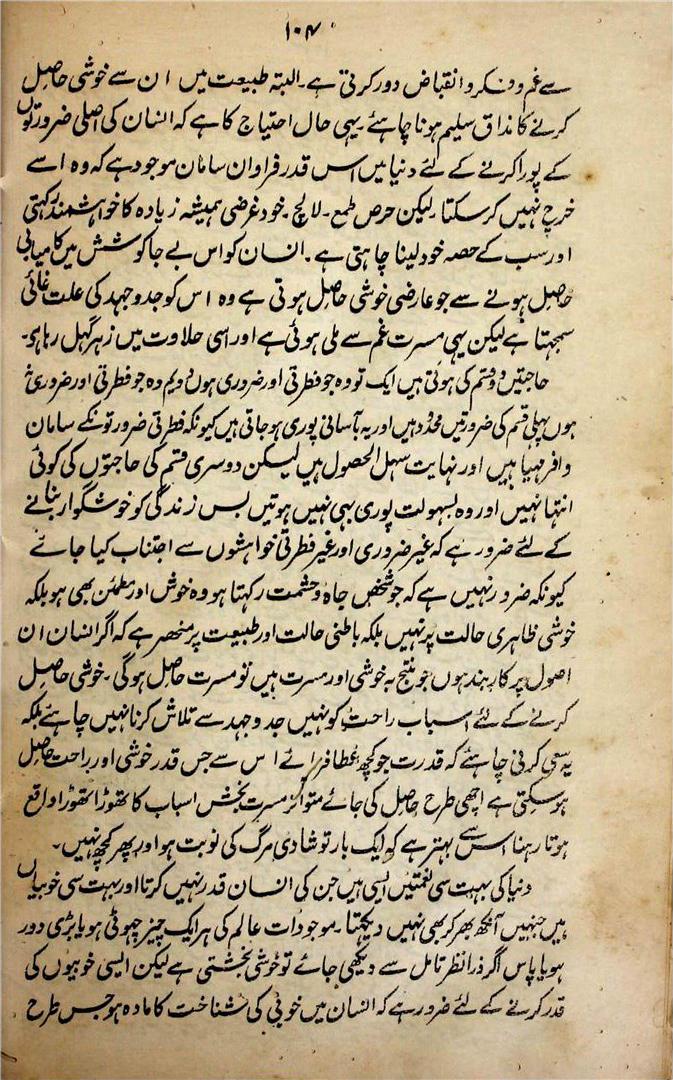 ۱۰۴
سے غم و فکر و انقباض دور کرتی ہے۔ البتہ طبیعت میں ان سے خوشی حاصل
کرنے کا مذاق سلیم ہونا چاہئے۔ یہی حال احتیاج کا ہے کہ انسان کی اصلی ضرورتوں
کے پورا کرنے کے لئے دنیا میں اس قدر فراوان سامان موجود ہے کہ وہ اسے
خرچ نہیں کر سکتا۔ لیکن حرص طمع۔ لالچ۔ خود غرضی ہمیشہ زیادہ کا خواہشمند رکہتی
اور سب کے حصہ خود لینا چاہتی ہے۔ انسان کو اس بے جا کوشش میں کامیابی
حاصل ہونے سے جو عارضی خوشی حاصل ہوتی ہے وہ اس کو جدوجہد کی علت غائی
سمجہتا ہے لیکن یہی مسرت غم سے ملی ہوئی ہے اور اسی حلاوت میں زہر گہل رہا ہی۔
حاجتیں دو قسم کی ہوتی ہیں ایک تو وہ جو فطرتی اور ضروری ہوں دویم وہ جو فطرتی اور ضروری نہ
ہوں پہلی قسم کی ضرورتیں محدود ہیں اور یہ بآسانی پوری ہو جاتی ہیں کیونکہ فطرتی ضرورتونکے سامان
وافر مہیا ہیں اور نہایت سہل الحصول ہیں لیکن دوسری قسم کی حاجتوں کی کوئی
انتہا نہیں اور وہ بسہولت پوری بہی نہیں ہوتیں بس زندگی کو خوشگوار بنانے
کے لئے ضرور ہے کہ غیر ضروری اور غیر فطرتی خواہشوں سے اجتناب کیا جائے
کیونکہ ضرور نہیں ہے کہ جو شخص جاہ و حشمت رکہتا ہو وہ خوش اور مطمئن بھی ہو بلکہ
خوشی ظاہری حالت پر نہیں بلکہ باطنی حالت اور طبیعت پر منحصر ہے کہ اگر انسان ان
اصول پر کاربند ہوں جو منتج بہ خوشی اور مسرت ہیں تو مسرت حاصل ہوگی۔ خوشی حاصل
کرنے کے لئے اسباب راحت کو نہیں جدوجہد سے تلاش کرنا نہیں چاہئے بلکہ
یہ سعی کرنی چاہئے کہ قدرت جو کچھ عطا فرمائے اس سے جس قدر خوشی اور راحت حاصل
ہو سکتی ہے اچھی طرح حاصل کی جائے متواتر مسرت بخش اسباب کا تھوڑا تھوڑا واقع
ہوتا رہنا اس سے بہتر ہے کہ ایک بار تو شادی مرگ کی نوبت ہو اور پھر کچھ نہیں۔
دنیا کی بہت سی نعمتیں ایسی ہیں جن کی انسان قدر نہیں کرتا اور بہت سی خوبیاں
ہیں جنہیں آنکھ بھر کر بھی نہیں دیکہتا۔ موجودات عالم کی ہر ایک چیز چہوٹی ہو یا بڑی دور
ہو یا پاس اگر ذرا نظر تامل سے دیکھی جائے تو خوشی بخشتی ہے لیکن ایسی خوبیوں کی
قدر کرنے کے لئے ضرور ہے کہ انسان میں خوبی کی شناخت کا مادہ ہو جس طرح